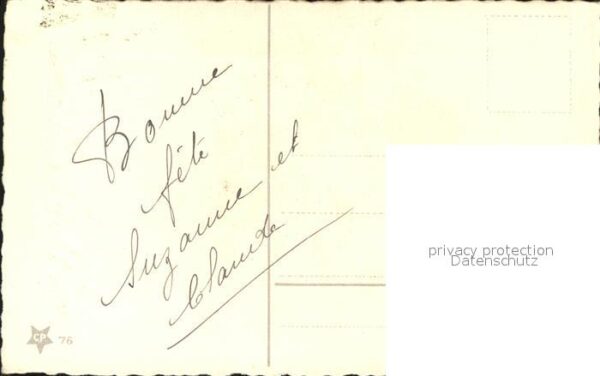 Bonne
fête
Suzanne et
Claude
privacy protection
Datenschutz
CP 76